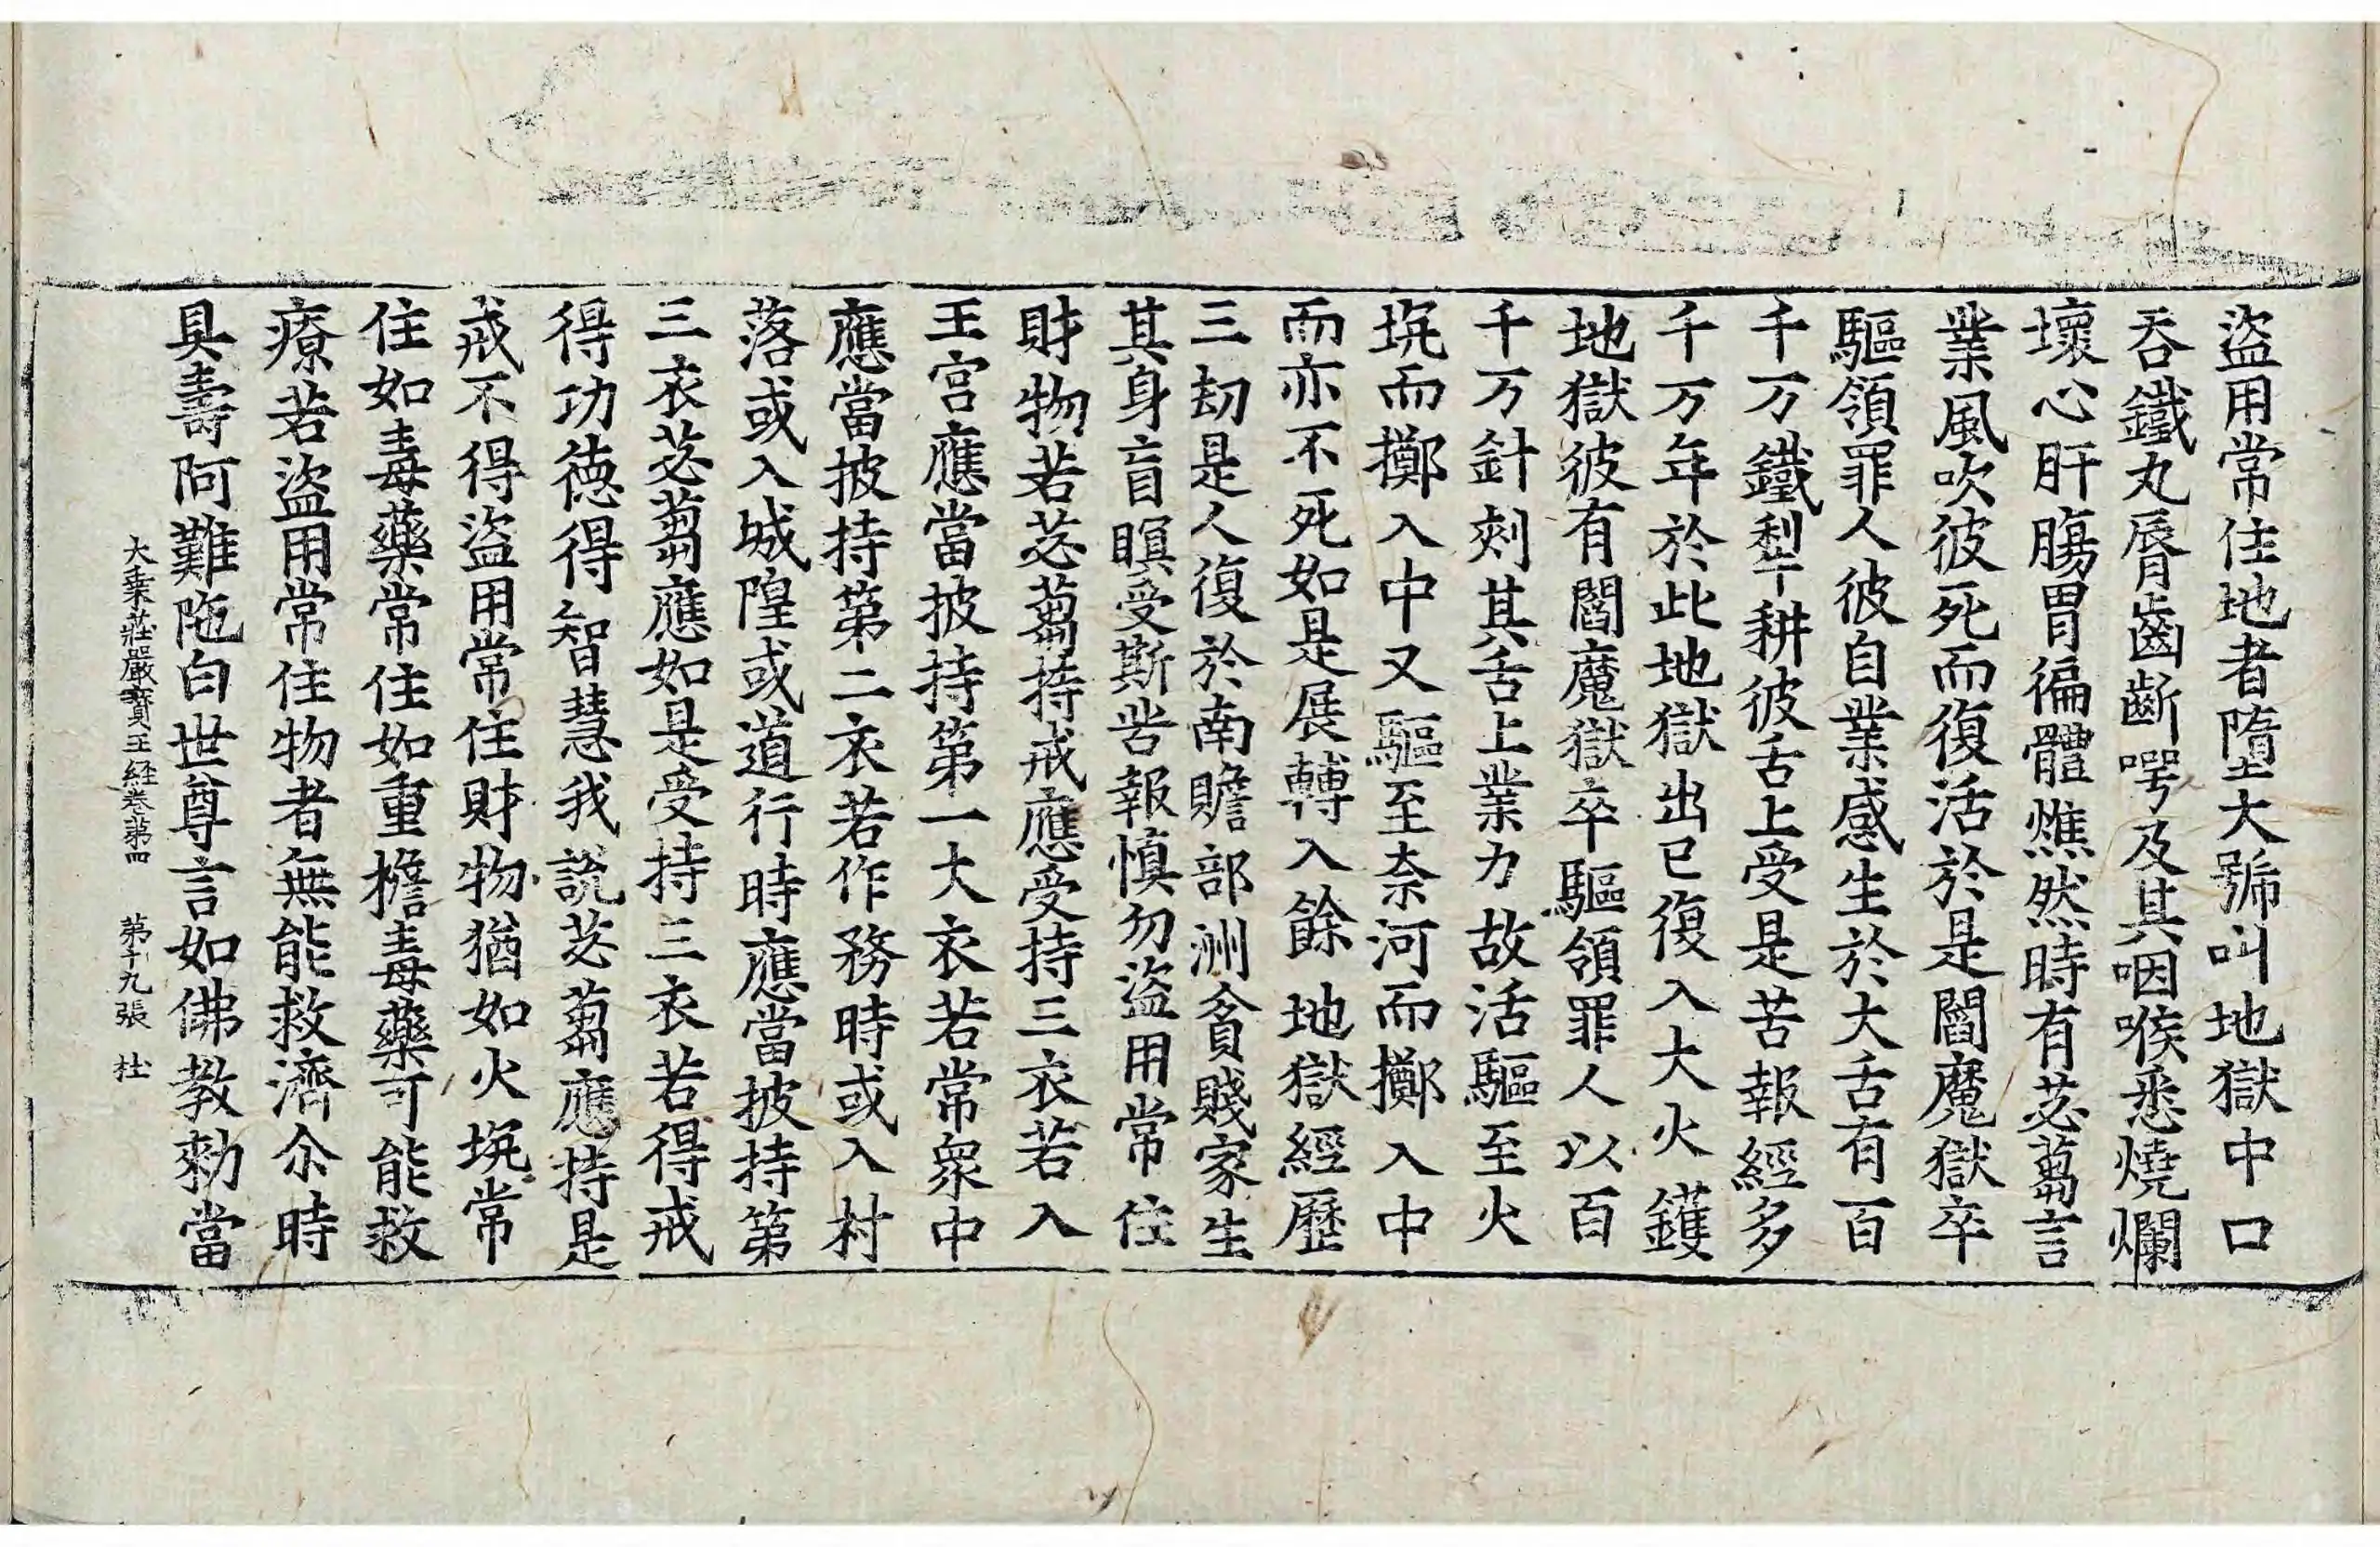 盜用常住地者墮大號叫地獄中口
吞鐵丸脣齒齗㗁及其咽喉悉燒爛
壞心肝膓胃徧體燋然時有苾蒭言
業風吹彼死而復活於是閻魔獄卒
驅領罪人彼自業感生於大舌有百
千万鐵犁耕彼舌上受是苦報經多
千万年於此地獄出已復入大火鑊
地獄彼有閻魔獄卒驅領罪人以百
千万針刾其舌上業力故活驅至火
坑而擲入中又驅至奈河而擲入中
而亦不死如是展轉入餘地獄經歷
三劫是人復於南贍部洲貧賤家生
其身盲瞑受斯苦報慎勿盜用常住
財物若苾蒭持戒應受持三衣若入
王宮應當披持第一大衣若常衆中
應當披持第二衣若作務時或入村
落或入城隍或道行時應當披持第
三衣苾蒭應如是受持三衣若得戒
得功德得智慧我說苾蒭應持是
戒不得盜用常住財物猶如火坑常
住如毒藥常住如重檐毒藥可能救
療若盜用常住物者無能救濟尒時
具壽阿難陁白世尊言如佛教勑當
大乗莊嚴寶王経卷第四 第十九張 杜